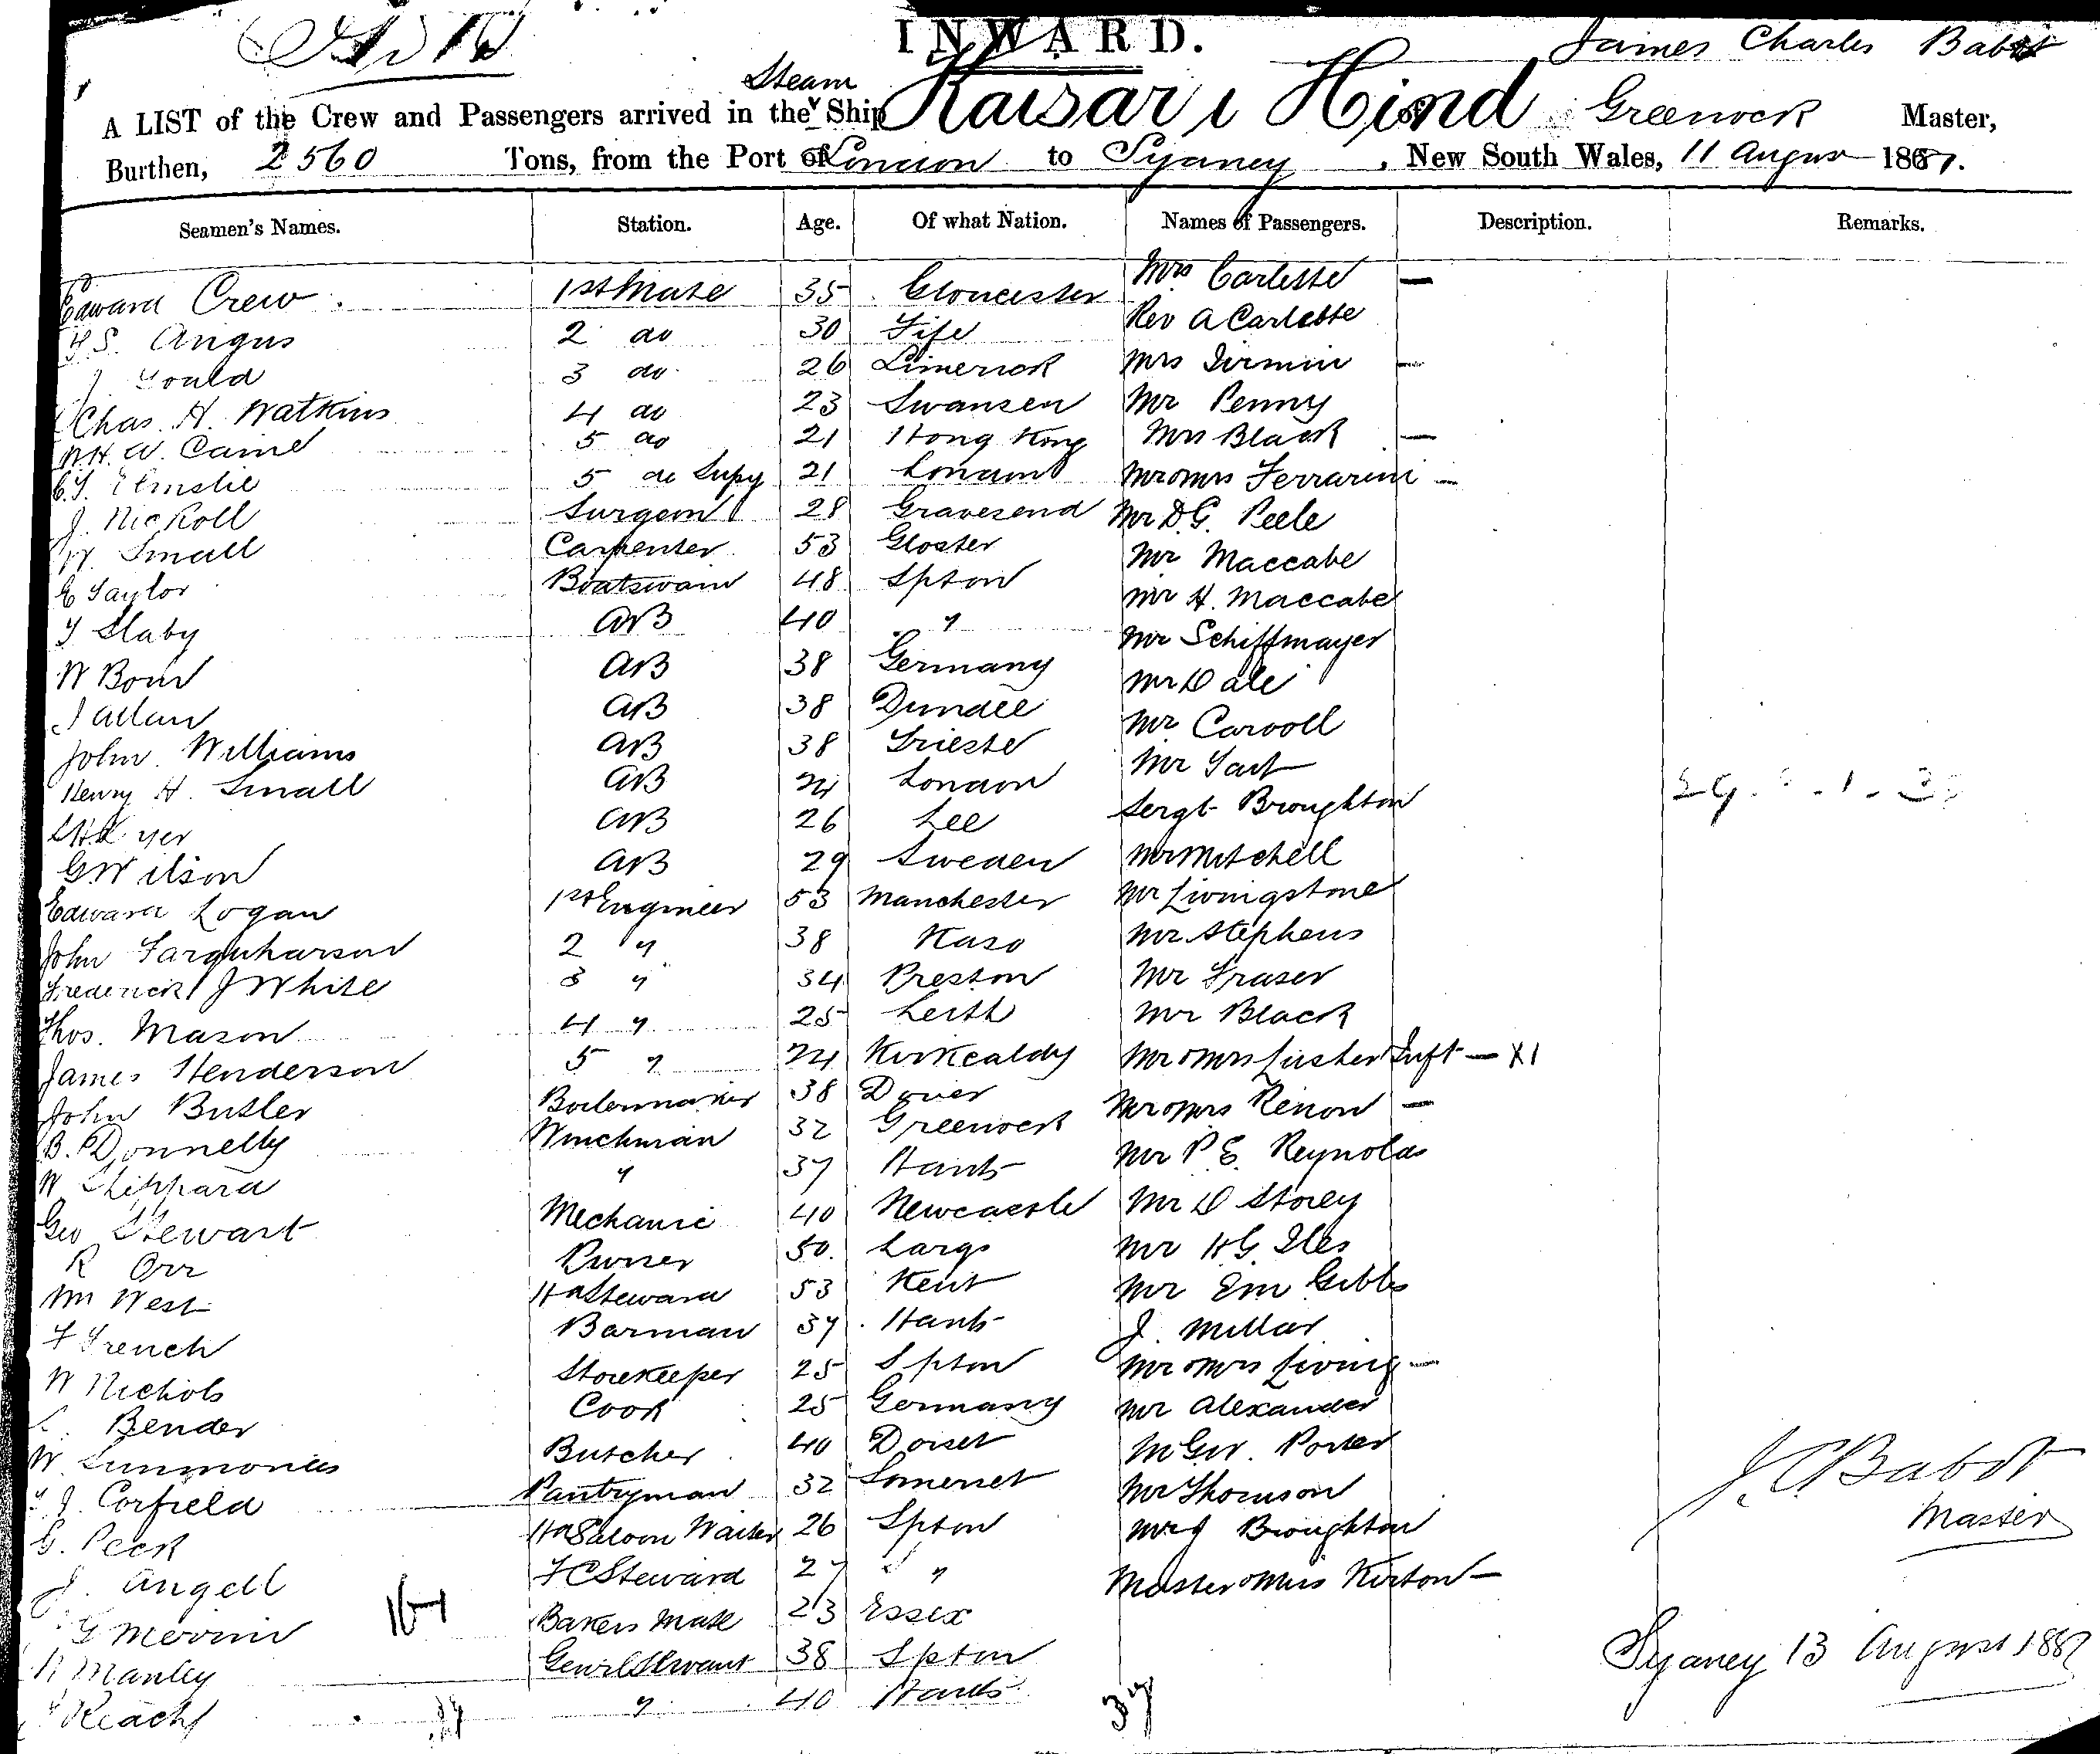 INWARD.
James Charles Babot
Steam
A LIST of the Crew and Passengers arrived in the Ship Kaisar i Hind of Greenock Master,
Burthen, 2560 Tons, from the Port of London to Sydney, New South Wales, 11 August 1887.
Seamen's Names. Station. Age. Of what Nation. Names of Passengers. Description. Remarks.
Edward Crew 1st Mate 35 Gloucester Mrs Carlette —
Angus 2 do 30 Fife Rev A Carlette
J Gould 3 do 26 Limerick Mrs Firmin —
Chas. H. Watkins 4 do 23 Swansea Mr Penny
W.H. W. Caine 5 do 21 Hong Kong Mrs Black —
Elmslie 5 do Supy 21 London Mr & Mrs Ferrarini —
J. Nickoll Surgeon 28 Gravesend Mr D.G. Peele
W. Small Carpenter 53 Gloster Mr Maccabe
E Taylor Boatswain 48 Spton Mr H. Maccabe
T Slaby AB 40 " Mr Schiffmayer
W Born AB 38 Germany Mr Dale
J Allan AB 38 Dundee Mr Carroll
John Williams AB 38 Trieste Mr Tart
Henry H. Small AB 24 London Sergt Broughton
AB 26 Lee Mr Mitchell
G Wilson AB 29 Sweden Mr Livingstone
Edward Logan 1st Engineer 53 Manchester Mr Stephens
John Farquharson 2 " 38 Mr Fraser
Frederick J White 3 " 34 Preston Mr Black
Thos. Mason 4 " 25 Leith Mr & Mrs Lister Inft — X1
James Henderson 5 " 24 Kirkcaldy Mr & Mrs Renon —
John Butler Boilermaker 38 Dover Mr P E. Reynolds
B. Donnelly Winchman 32 Greenock Mr D Storey
W Shippard " 37 Hants Mr H G Iles
Geo Stewart Mechanic 40 Newcastle Mr Em Gibbs
R Orr Purser 50 Largs J. Millar
Wm West Hd Steward 53 Kent Mr & Mrs Living —
F French Barman 37 Hants Mr Alexander
W Nichols Storekeeper 25 Spton Porter
L. Bender Cook 25 Germany Mr Thomson
W Simmonds Butcher 40 Dorset Broughton
J. Corfield Pantryman 32 Somerset Master & Miss Kirton —
G. Peck Hd Saloon Waiter 26 Spton
J. Angell FC Steward 27 "
G Merrin Bakers Mate 23 Essex
Manley Genrl Servant 38 Spton
Reach " 40 Hants
37
J. C. Babot
Master
Sydney 13 August 1887